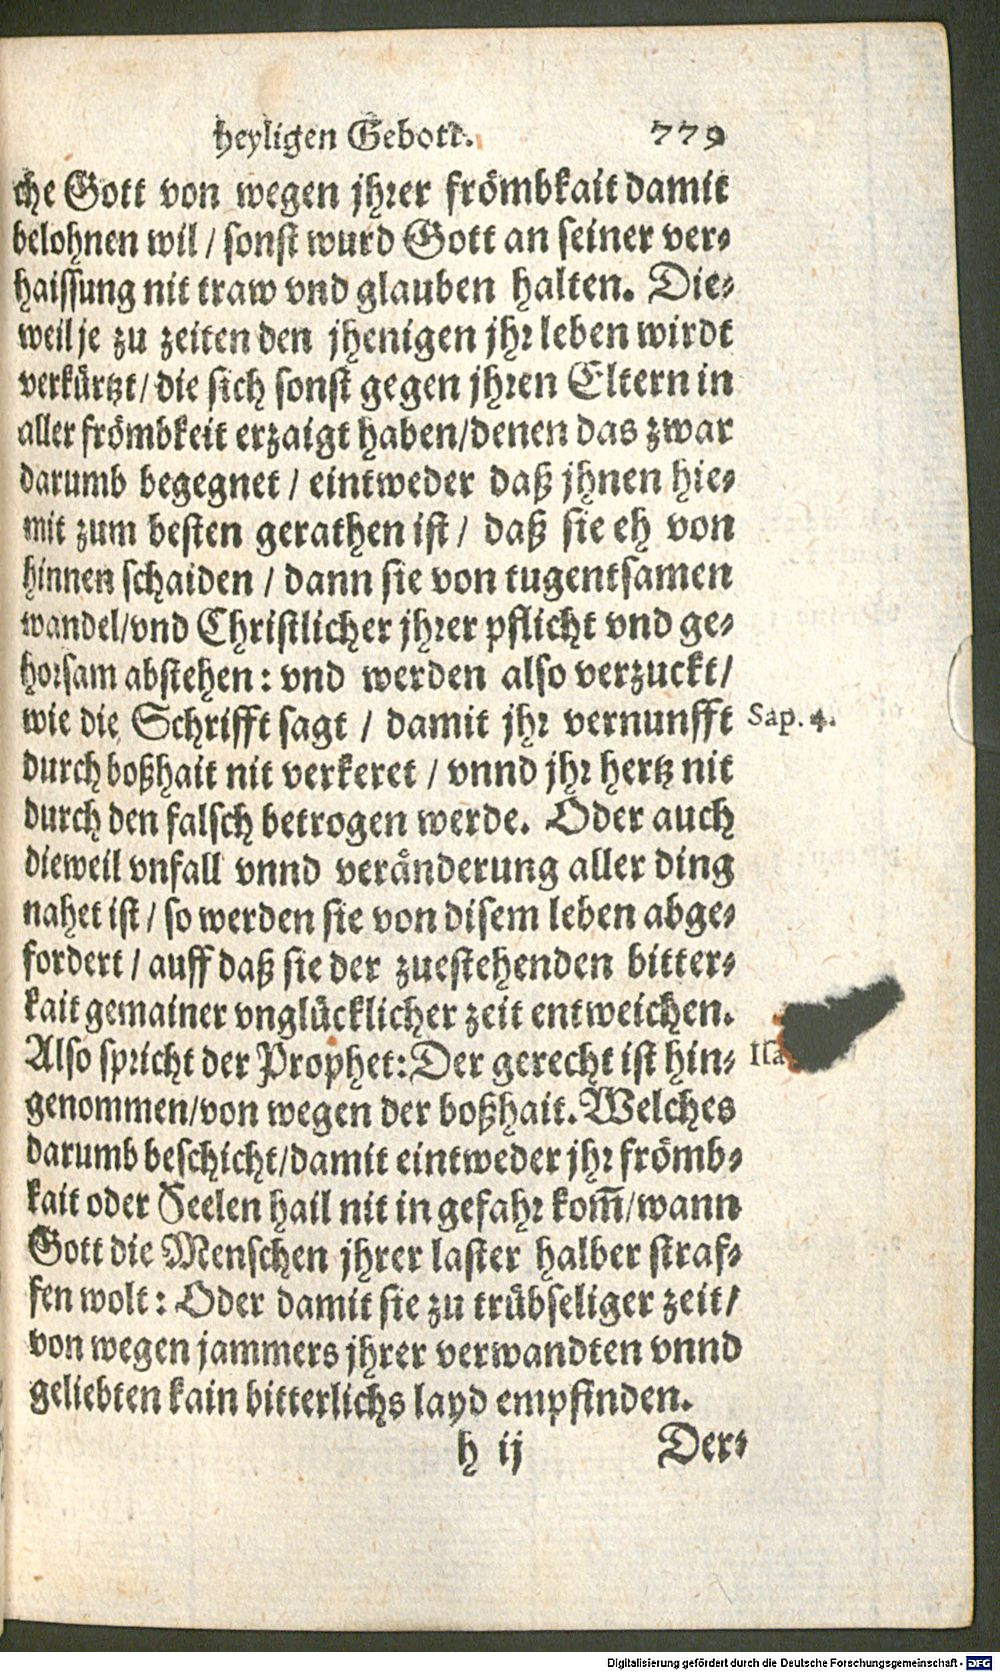 heyligen Gebott. 779
che Gott von wegen jhrer frömbkait damit
belohnen wil / sonst wurd Gott an seiner ver⸗
haissung nit traw vnd glauben halten. Die⸗
weil je zu zeiten den jhenigen jhr leben wirdt
verkürtzt / die sich sonst gegen jhren Eltern in
aller frömbkeit erzaigt haben / denen das zwar
darumb begegnet / eintweder daß jhnen hie⸗
mit zum besten gerathen ist / daß sie eh von
hinnen schaiden / dann sie von tugentsamen
wandel / vnd Christlicher jhrer pflicht vnd ge⸗
horsam abstehen : vnd werden also verzuckt /
wie die Schrifft sagt / damit jhr vernunfft Sap. 4.
durch boßhait nit verkeret / vnnd jhr hertz nit
durch den falsch betrogen werde. Oder auch
dieweil vnfall vnnd veränderung aller ding
nahet ist / so werden sie von disem leben abge⸗
fordert / auff daß sie der zuestehenden bitter⸗
kait gemainer vnglücklicher zeit entweichen.
Also spricht der Prophet: Der gerecht ist hin⸗ Isa
genommen / von wegen der boßhait. Welches
darumb beschicht / damit eintweder jhr frömb⸗
kait oder Seelen hail nit in gefahr kom̃ / wann
Gott die Menschen jhrer laster halber straf⸗
fen wolt : Oder damit sie zu trübseliger zeit /
von wegen jammers jhrer verwandten vnnd
geliebten kain bitterlichs layd empfinden.
h ij Der⸗
Digitalisierung gefördert durch die Deutsche Forschungsgemeinschaft - DFG